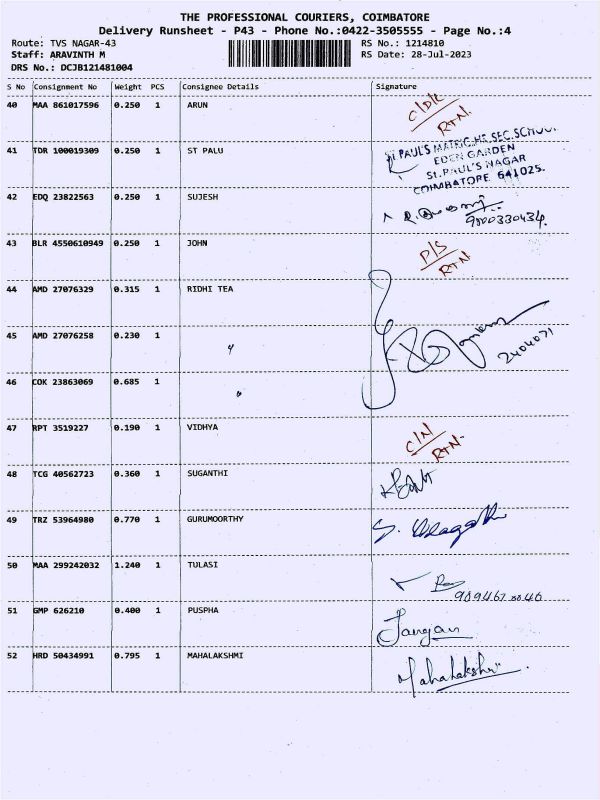 THE PROFESSIONAL COURIERS, COIMBATORE
Delivery Runsheet - P43 - Phone No.:0422-3505555 - Page No.:4
Route: TVS NAGAR-43 RS No.: 1214810
Staff: ARAVINTH M RS Date: 28-Jul-2023
DRS No.: DCJB121481004
S No Consignment No Weight PCS Consignee Details Signature
40 MAA 861017596 0.250 1 ARUN C/DR
RTN.
41 TDR 100019309 0.250 1 ST PALU St.PAUL'S MATRIC.HR.SEC.SCHOOL
EDEN GARDEN
St.PAUL'S NAGAR
COIMBATORE 641025.
42 EDQ 23822563 0.250 1 SUJESH
9800330434.
43 BLR 4550610949 0.250 1 JOHN P/S
RTN
44 AMD 27076329 0.315 1 RIDHI TEA
45 AMD 27076258 0.230 1 "
2404071
46 COK 23863069 0.685 1 "
47 RPT 3519227 0.190 1 VIDHYA C/N
RTN-
48 TCG 40562723 0.360 1 SUGANTHI
49 TRZ 53964980 0.770 1 GURUMOORTHY
50 MAA 299242032 1.240 1 TULASI
51 GMP 626210 0.400 1 PUSPHA Jangan
52 HRD 50434991 0.795 1 MAHALAKSHMI Mahalakshmi